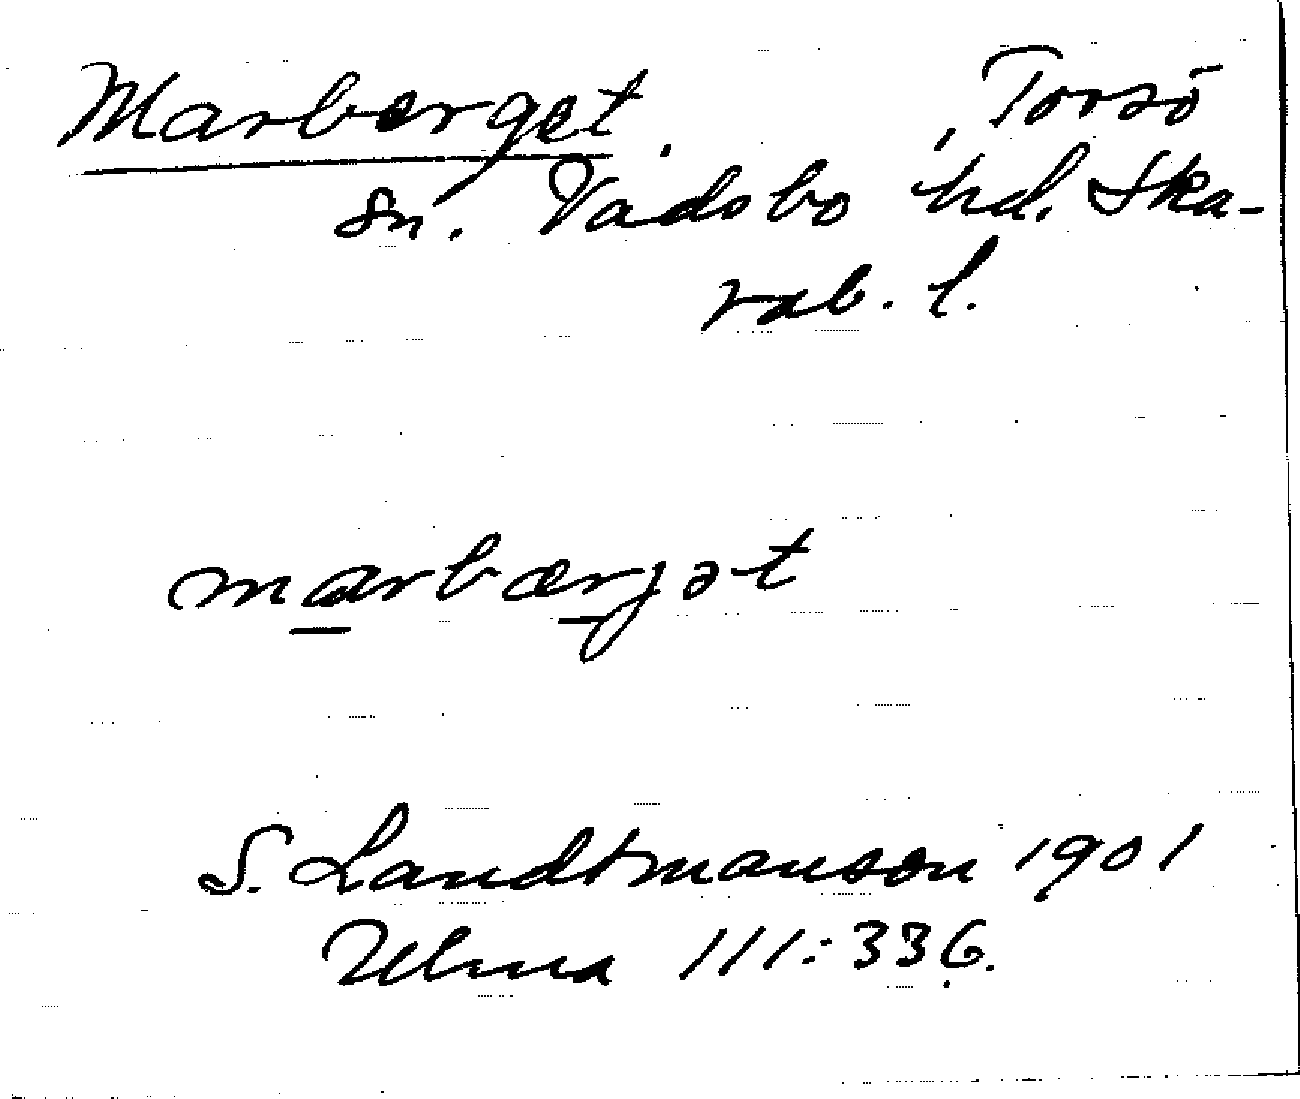 Marberget. , Torsö
sn. Vadsbo hd. Ska-
rab. l.
marbærjət
S. Landtmanson 1901
Ulma 111:336.